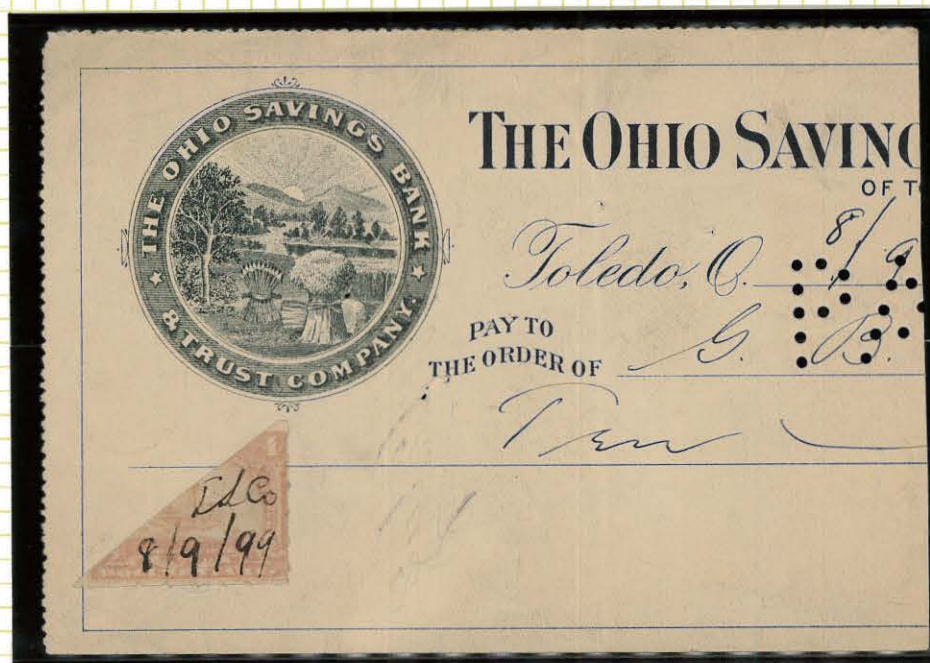 THE OHIO SAVINGS BANK
& TRUST COMPANY.
THE OHIO SAVING
OF TO
Toledo, O. 8/9
PAY TO
THE ORDER OF G. B.
Ten
8/9/99